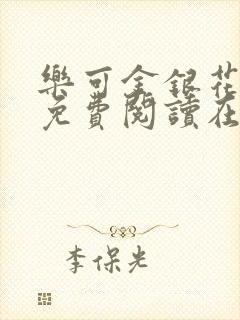 樂可金銀花
免費閱讀在
李保光